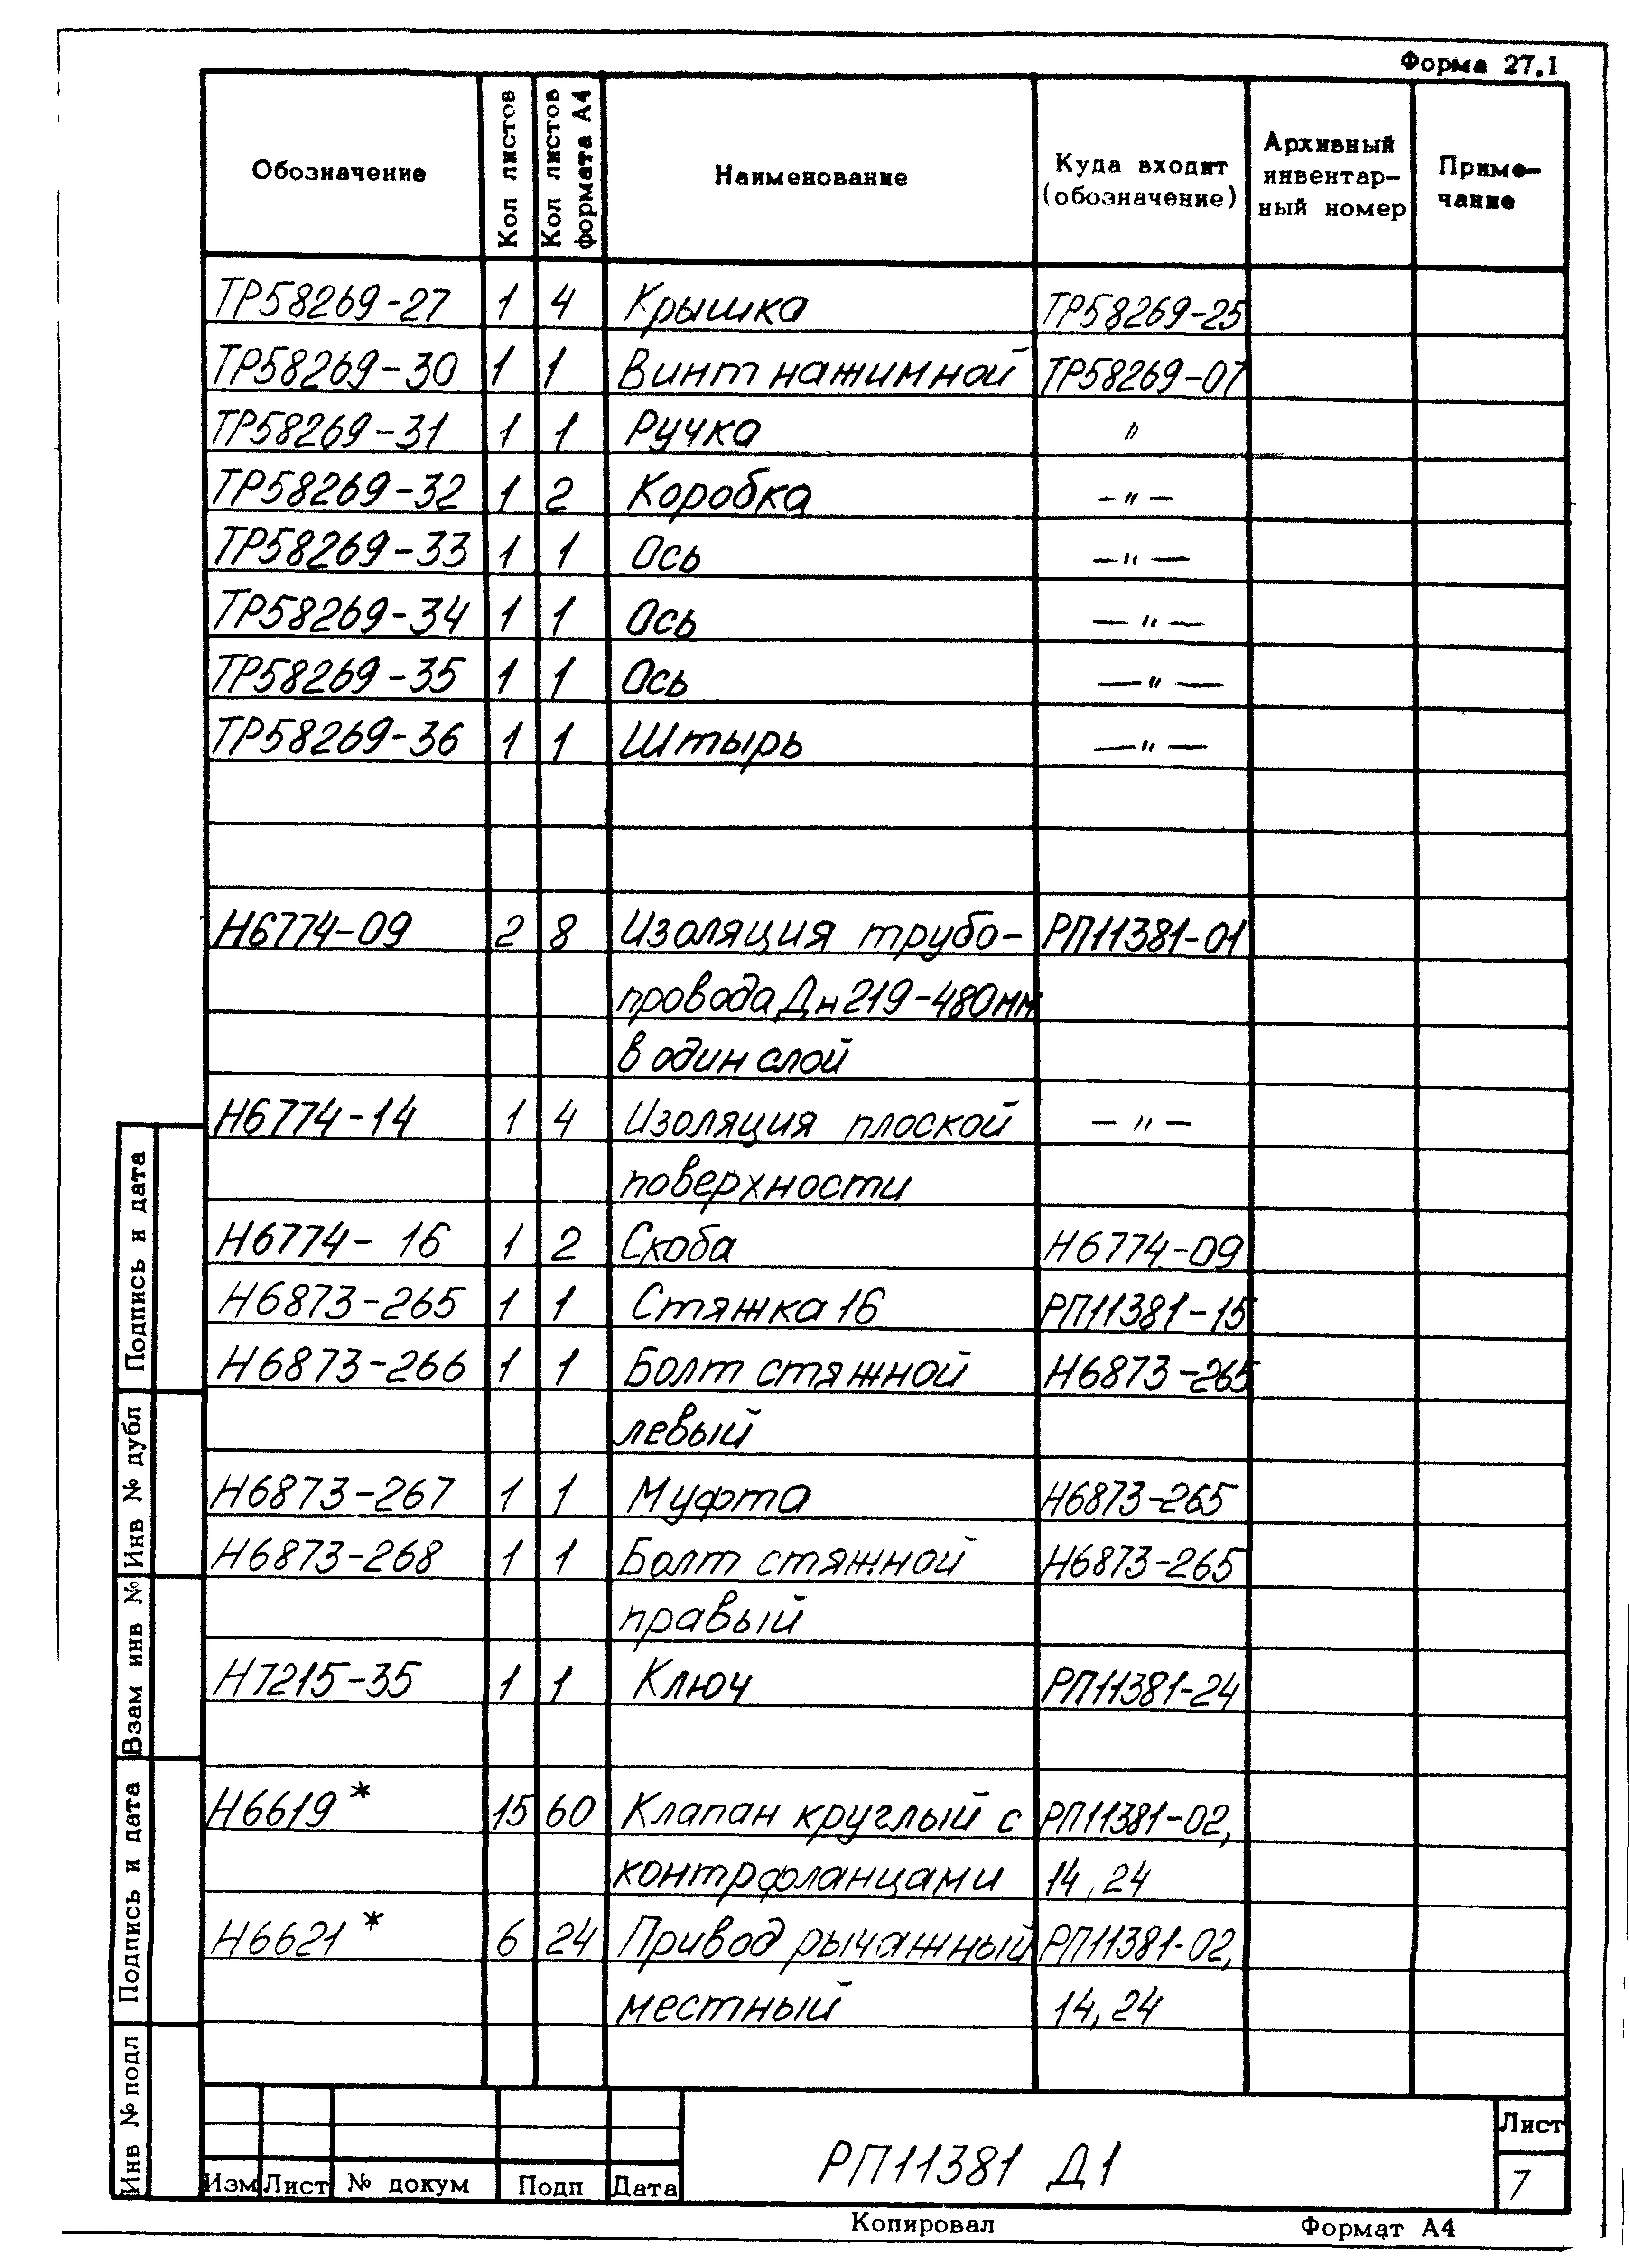 Форма 27.1
Обозначение
Кол листов
Кол листов формата А4
Наименование
Куда входит (обозначение)
Архивный инвентар-
ный номер
Приме-
чание
ТР58269-27 1 4 Крышка ТР58269-25
ТР58269-30 1 1 Винт нажимной ТР58269-07
ТР58269-31 1 1 Ручка "
ТР58269-32 1 2 Коробка -"-
ТР58269-33 1 1 Ось -"-
ТР58269-34 1 1 Ось -"-
ТР58269-35 1 1 Ось -"-
ТР58269-36 1 1 Штырь -"-
Н6774-09 2 8 Изоляция трубо- РП11381-01
провода Дн 219-480мм
в один слой
Н6774-14 1 4 Изоляция плоской -"-
поверхности
Н6774-16 1 2 Скоба Н6774-09
Н6873-265 1 1 Стяжка 16 РП11381-15
Н6873-266 1 1 Болт стяжной Н6873-265
левый
Н6873-267 1 1 Муфта Н6873-265
Н6873-268 1 1 Болт стяжной Н6873-265
правый
Н7215-35 1 1 Ключ РП11381-24
Н6619* 15 60 Клапан круглый с РП11381-02,
контрфланцами 14, 24
Н6621* 6 24 Привод рычажный РП11381-02,
местный 14, 24
Подпись и дата
Инв № дубл
Взам инв №
Подпись и дата
Инв № подл
Изм Лист № докум Подп Дата
РП11381 Д1
Лист
7
Копировал Формат А4